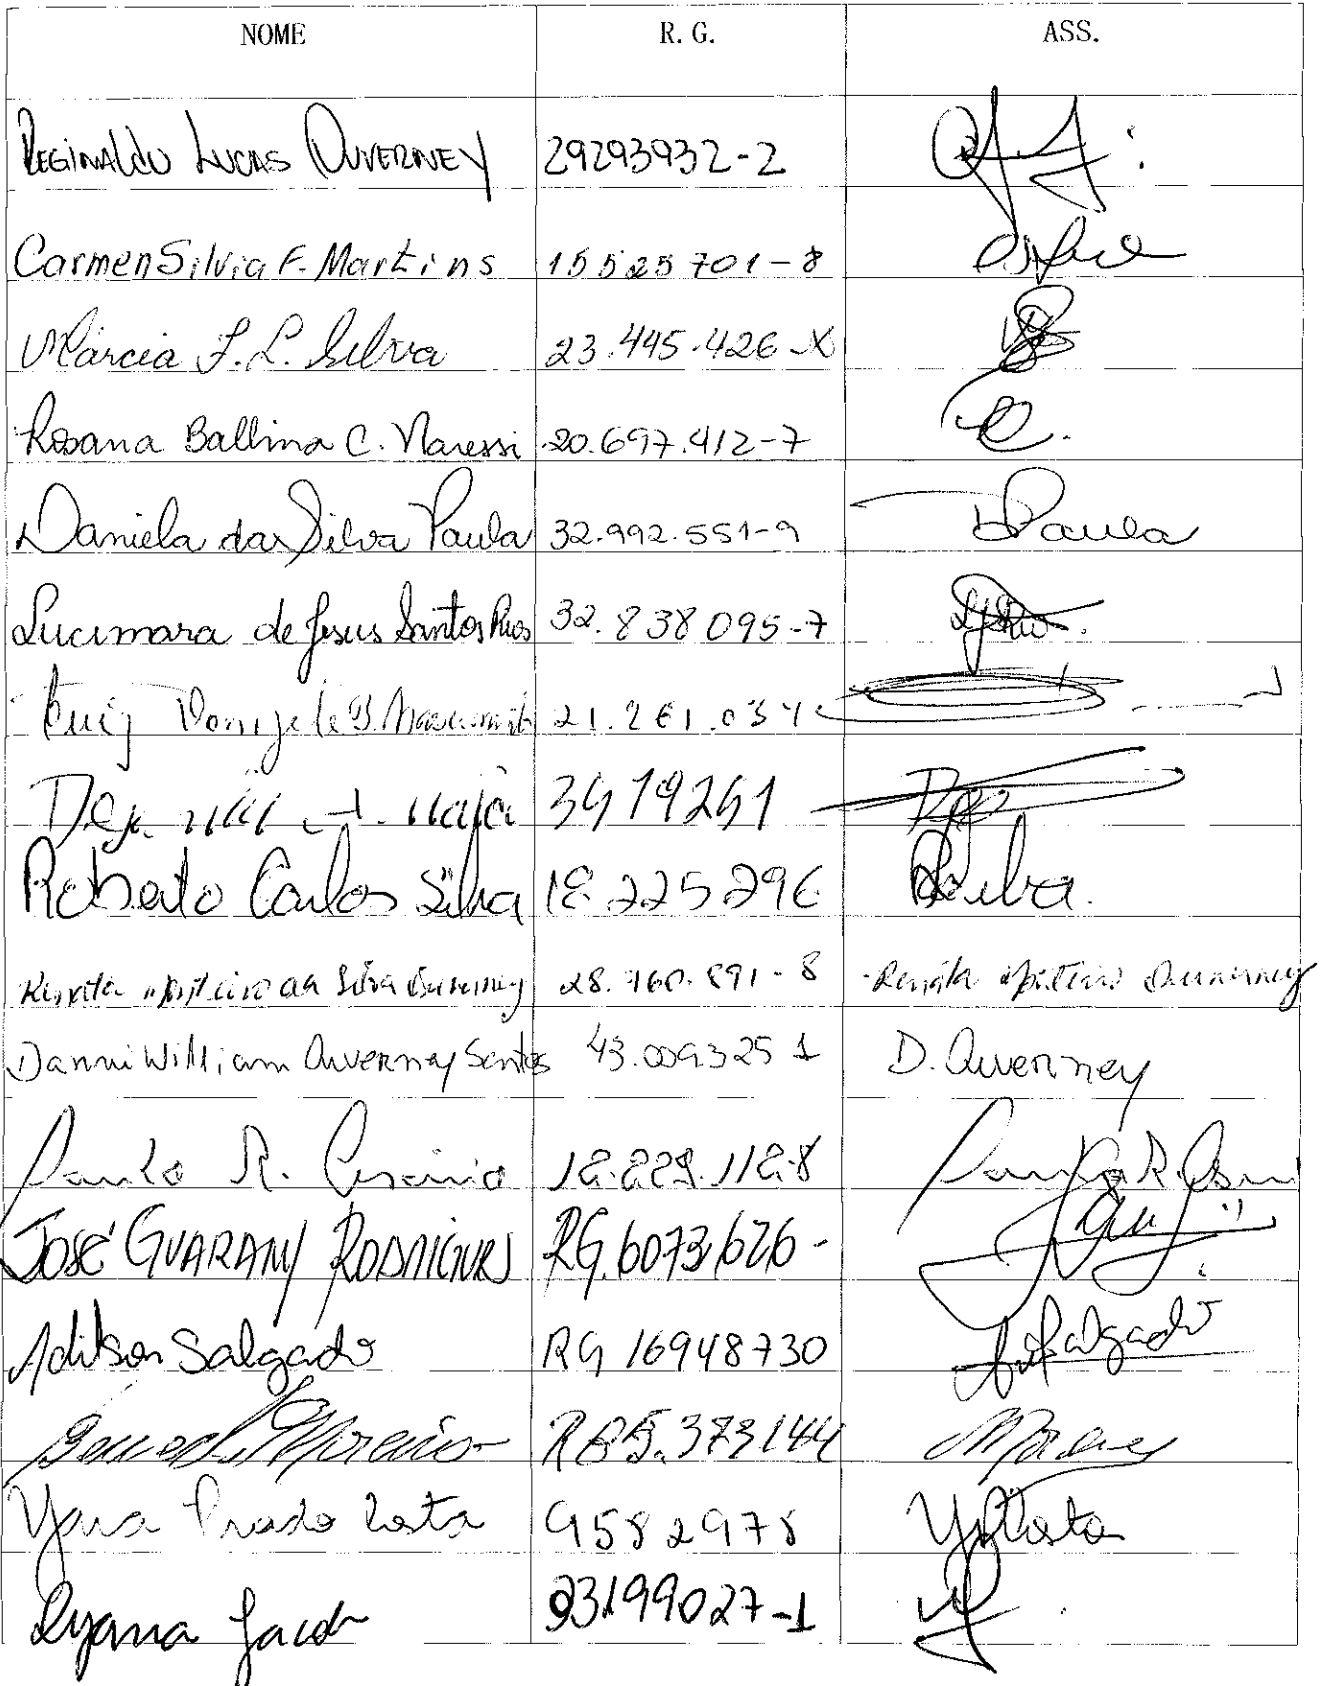 NOME R. G. ASS.
REGINALDO LUCAS OUVERNEY 29293932-2
Carmen Silvia F. Martins 15525701-8
Márcia F. L. Silva 23.445.426-X
Rosana Ballina C. Naressi 20.697.412-7
Daniela da Silva Paula 32.992.551-9 DPaula
Lucimara de Jesus Santos Rios 32.838095-7
Luiz Donizete B. 21.261.034
3479241
Roberto Carlos Silva 18.225296 RSilva.
Renata Monteiro da Silva Ouverney 28.760.891-8 Renata Monteiro Ouverney
Danni William Ouverney Santos 43.009325 1 D. Ouverney
Paulo R. Cesário 18.829.118-8 Paulo R.
JOSÉ GUARANY RODRIGUES RG.6073626-
Adilson Salgado RG 16948730 Salgado
373144
Yara Prado Costa 9582978 YPCosta
Dyana Jacob 23199027-1